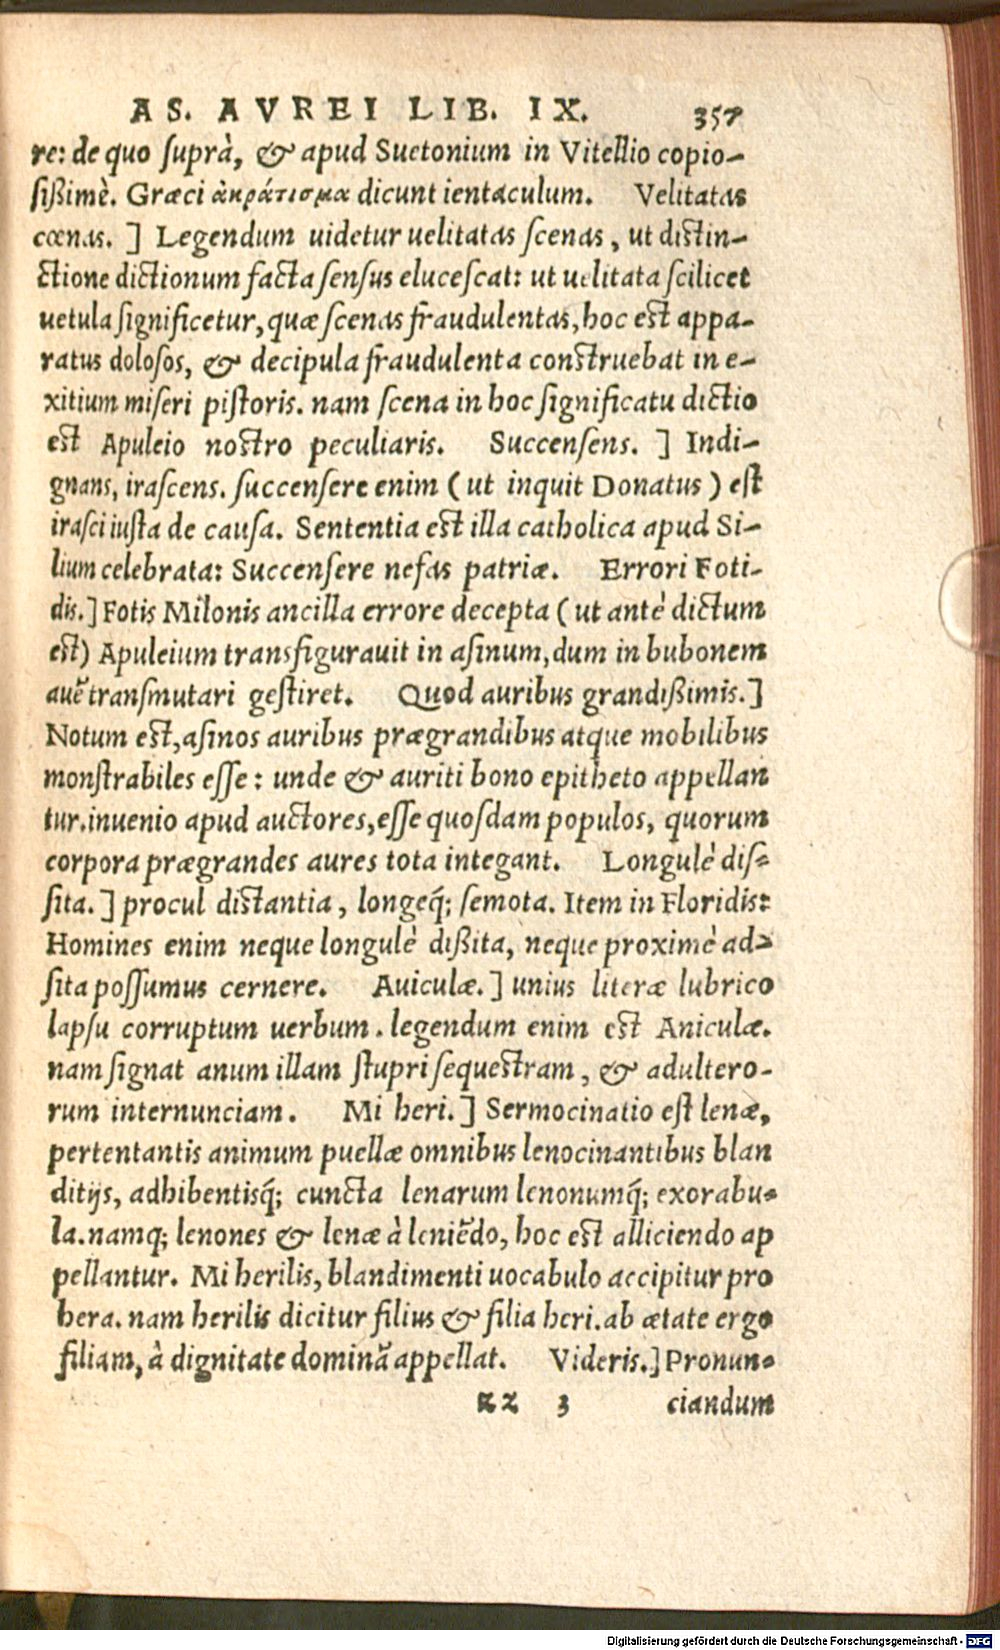 AS. AVREI LIB. IX. 357
re: de quo suprà, & apud Suetonium in Vitellio copio-
sißimè. Græci ἀκράτισμα dicunt ientaculum. Velitatas
cœnas. ] Legendum uidetur uelitatas scenas, ut distin-
ctione dictionum facta sensus elucescat: ut uelitata scilicet
uetula significetur, quæ scenas fraudulentas, hoc est appa-
ratus dolosos, & decipula fraudulenta construebat in e-
xitium miseri pistoris. nam scena in hoc significatu dictio
est Apuleio nostro peculiaris. Succensens. ] Indi-
gnans, irascens. succensere enim ( ut inquit Donatus ) est
irasci iusta de causa. Sententia est illa catholica apud Si-
lium celebrata: Succensere nefas patriæ. Errori Foti-
dis. ] Fotis Milonis ancilla errore decepta ( ut antè dictum
est) Apuleium transfigurauit in asinum, dum in bubonem
auē transmutari gestiret. Quod auribus grandißimis. ]
Notum est, asinos auribus prægrandibus atque mobilibus
monstrabiles esse: unde & auriti bono epitheto appellan
tur. inuenio apud auctores, esse quosdam populos, quorum
corpora prægrandes aures tota integant. Longulè dis-
sita. ] procul distantia, longeq́; semota. Item in Floridis:
Homines enim neque longulè dißita, neque proximè ad-
sita possumus cernere. Auiculæ. ] unius literæ lubrico
lapsu corruptum uerbum. legendum enim est Aniculæ.
nam signat anum illam stupri sequestram, & adultero-
rum internunciam. Mi heri. ] Sermocinatio est lenæ,
pertentantis animum puellæ omnibus lenocinantibus blan
ditijs, adhibentisq́; cuncta lenarum lenonumq́; exorabu-
la. namq; lenones & lenæ à leniēdo, hoc est alliciendo ap
pellantur. Mi herilis, blandimenti uocabulo accipitur pro
hera. nam herilis dicitur filius & filia heri. ab ætate ergo
filiam, à dignitate dominā appellat. Videris. ] Pronun-
zz 3 ciandum
Digitalisierung gefördert durch die Deutsche Forschungsgemeinschaft - DFG